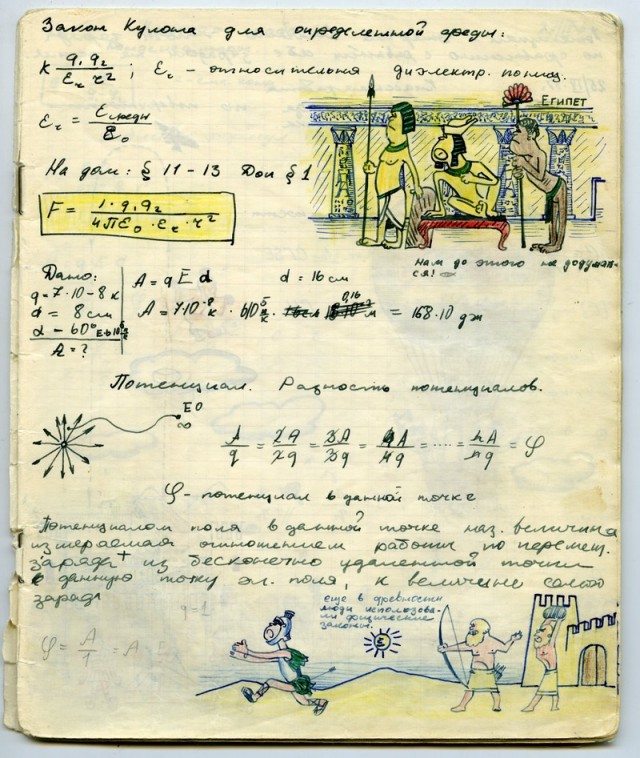 Закон Кулона для определенной среды:
K q₁ q₂ / ε₂ r² ; ε₂ – относительная диэлектр. прониц.
ε₂ = ε среды / ε₀
ЕГИПЕТ
На дом: § 11 – 13 Доп § 1
F = 1 · q₁ q₂ / 4πε₀ · ε₂ · r²
нам до этого не додумать-
ся!
Дано:
q = 7·10 – 8 к
d = 8 см
d – 60°
A = ?
A = q E d d = 16 см
A = 7·10⁻⁸ к · 0,16 м = 168·10 дж
Потенциал. Разность потенциалов.
E 0
∞
A/q = 2A/2q = 3A/3q = 4A/4q = ..... = nA/nq = φ
φ – потенциал в данной точке
Потенциалом поля в данной точке наз. величина
измеряемая отношением работы по перемещ.
заряда + из бесконечно удаленной точки
в данную точку эл. поля, к величине самого
заряда
q = 1
еще в древности
люди использова-
ли физические
законы.
φ = A/1 = A